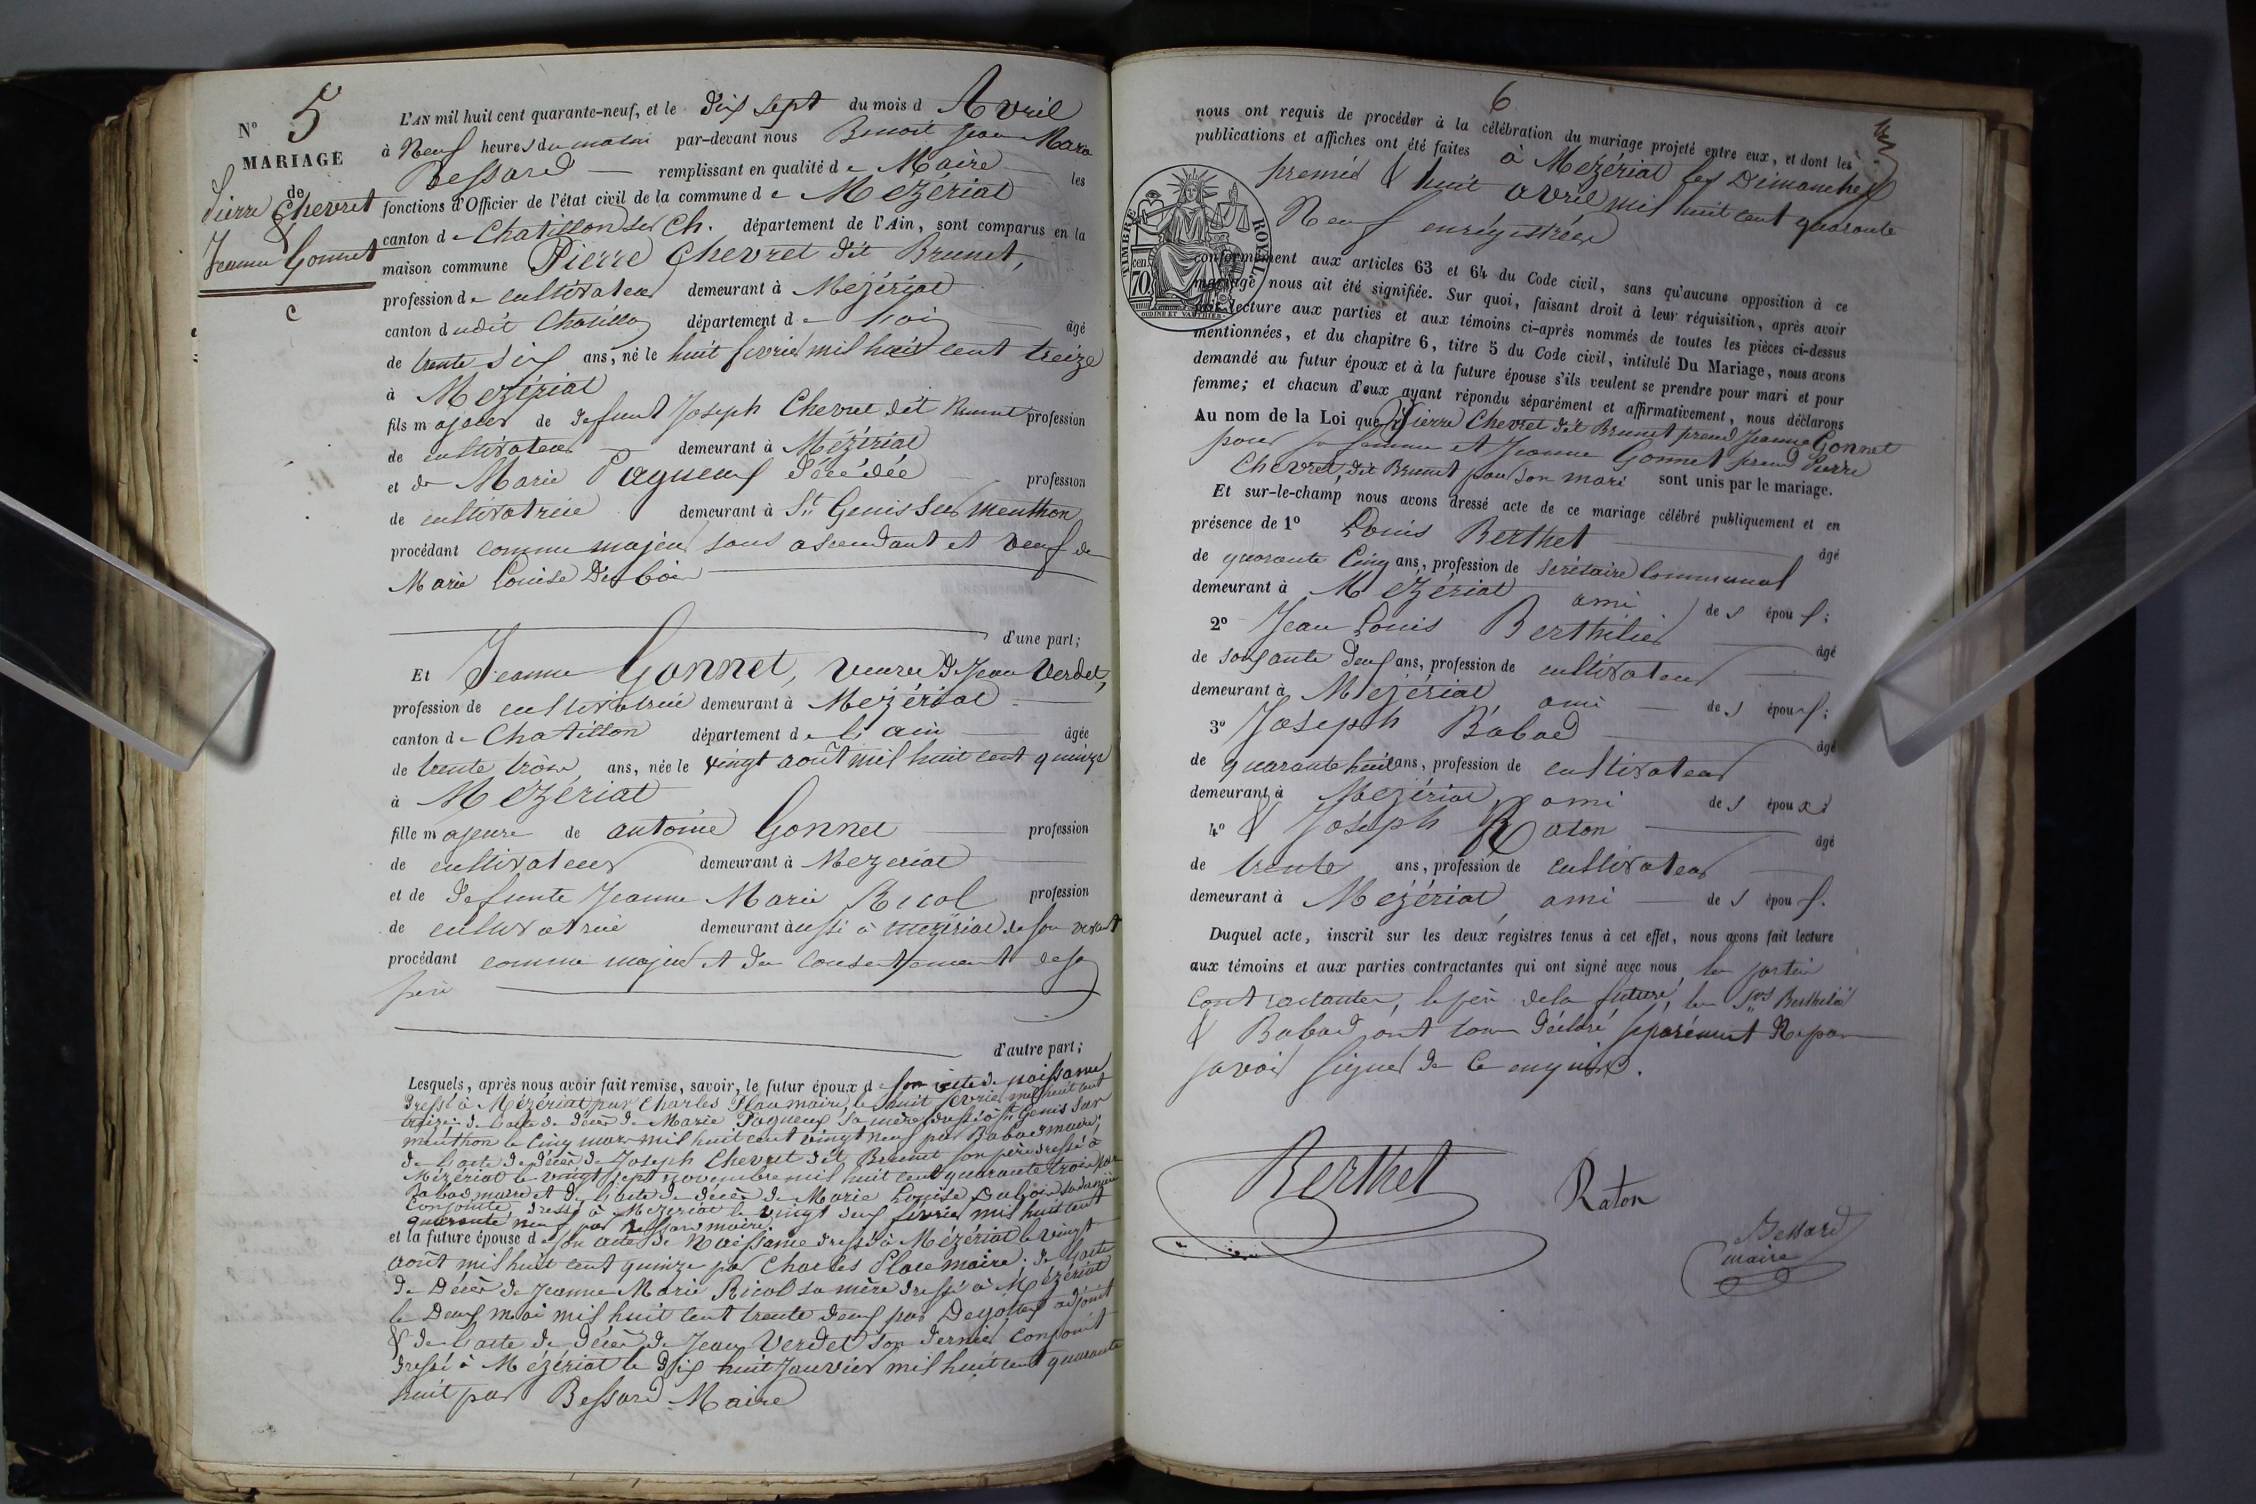 N° 5
MARIAGE
de
Pierre Chevret
&
Jeanne Gonnet
c
L'AN mil huit cent quarante-neuf, et le dix sept du mois d'Avril
à Neuf heures du matin par-devant nous Benoit Jean Marie
Bessard — remplissant en qualité de Maire les
fonctions d'Officier de l'état civil de la commune de Mézériat
canton de Chatillon sur Ch. département de l'Ain, sont comparus en la
maison commune Pierre Chevret dit Brunet,
profession de cultivateur demeurant à Mézériat
canton dudit Chatillon département de l'ain âgé
de trente six ans, né le huit fevrier mil huit cent treize
à Mézériat
fils majeur de defunt Joseph Chevret dit Brunet profession
de cultivateur demeurant à Mézériat
et de Marie Pagneux décédée profession
de cultivatrice demeurant à St Genis sur Menthon
procédant comme majeur sans ascendant et veuf de
Marie Louise Dubois
d'une part;
Et Jeanne Gonnet, veuve de Jean Verdet,
profession de cultivatrice demeurant à Mézériat
canton de Chatillon département de l'ain âgée
de trente trois ans, née le vingt août mil huit cent quinze
à Mézériat
fille majeure de antoine Gonnet profession
de cultivateur demeurant à Mezeriat
et de defunte Jeanne Marie Ricol profession
de cultivatrice demeurant aussi à mézériat de son vivant
procédant comme majeur et du consentement de so
père
d'autre part;
Lesquels, après nous avoir fait remise, savoir, le futur époux de son acte de naissance
dressé à Mézériat par Charles Place maire, le huit fevrier mil huit cent
treize; de l'acte de décès de Marie Pagneux sa mère dressé à St Genis sur
menthon le cinq mars mil huit cent vingt neuf par Babad maire;
de l'acte de décès de Joseph Chevret dit Brunet son père dressé à
Mézériat le vingt sept novembre mil huit cent quarante trois par
Babad maire et de l'acte de décès de Marie Louise Dubois sa dernière
conjointe, dressé à Mézériat le vingt deux février mil huit cent
quarante neuf par Bessard maire.
et la future épouse de son acte de Naissance dressé à Mézériat le vingt
août mil huit cent quinze par Charles Place maire; de l'acte
de Décès de Jeanne Marie Ricol sa mère dressé à Mézériat
le Deux mai mil huit cent trente deux par adjoint
& de l'acte de décès de Jean Verdet son dernier conjoint
dressé à Mézériat le dix huit Janvier mil huit cent quarante
huit par Bessard Maire
6
nous ont requis de procéder à la célébration du mariage projeté entre eux, et dont les
publications et affiches ont été faites à Mézériat les Dimanches
premier & huit avril mil huit cent quarante
Neuf enrégistrées
conformément aux articles 63 et 64 du Code civil, sans qu'aucune opposition à ce
mariage nous ait été signifiée. Sur quoi, faisant droit à leur réquisition, après avoir
fait lecture aux parties et aux témoins ci-après nommés de toutes les pièces ci-dessus
mentionnées, et du chapitre 6, titre 5 du Code civil, intitulé Du Mariage, nous avons
demandé au futur époux et à la future épouse s'ils veulent se prendre pour mari et pour
femme; et chacun d'eux ayant répondu séparément et affirmativement, nous déclarons
Au nom de la Loi que Pierre Chevret dit Brunet prend Jeanne Gonnet
pour sa femme et Jeanne Gonnet prend Pierre
Chevret, dit Brunet pour son mari sont unis par le mariage.
Et sur-le-champ nous avons dressé acte de ce mariage célébré publiquement et en
présence de 1° Louis Berthet âgé
de quarante Cinq ans, profession de secrétaire Communal
demeurant à Mézériat ami des époux;
2° Jean Louis Berthilier âgé
de soixante deux ans, profession de cultivateur
demeurant à Mézériat ami des époux;
3° Joseph Babad âgé
de quarante huit ans, profession de cultivateur
demeurant à Mézériat, ami des époux;
4° & Joseph Raton âgé
de trente ans, profession de cultivateur
demeurant à Mézériat, ami des époux.
Duquel acte, inscrit sur les deux registres tenus à cet effet, nous avons fait lecture
aux témoins et aux parties contractantes qui ont signé avec nous, les parties
Contractantes, le père de la future, les Srs Berthilier
& Babad ont tous déclaré séparément Ne pas
savoir signer de ce enquis.
TIMBRE ROYAL
70 cen
OUDINE ET VAUTHIER
Berthet
Raton
Bessard
maire